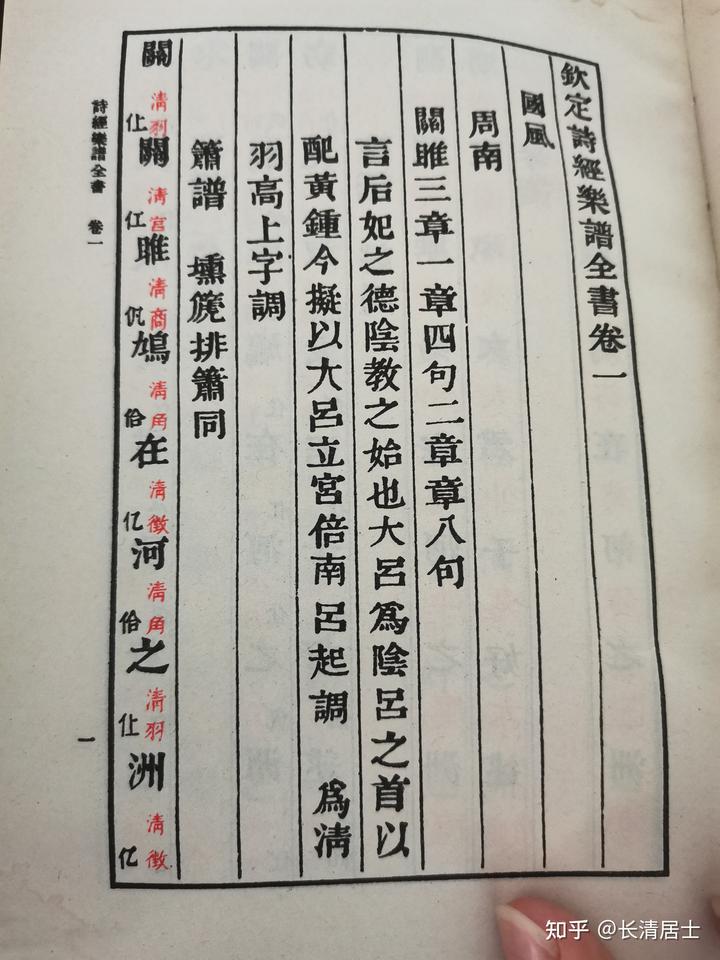 欽定詩經樂譜全書卷一
國風
周南
關雎三章一章四句二章章八句
言后妃之德陰教之始也大呂爲陰呂之首以
配黃鍾今擬以大呂立宮倍南呂起調 爲清
羽高上字調
簫譜 壎篪排簫同
關 清羽 仩 關 清宮 仜 雎 清商 鳩 清角 佮 在 清徵 亿 河 清角 佮 之 清羽 仩 洲 清徵 亿
詩經樂譜全書 卷一 一
知乎 @长清居士